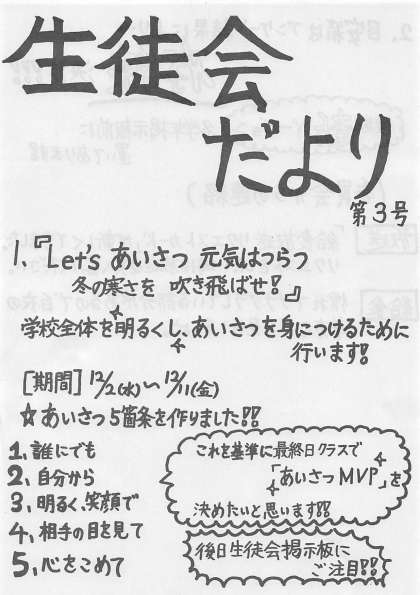 生徒会
だより
第3号
1.『Let's あいさつ 元気はつらつ
冬の寒さを 吹き飛ばせ!』
学校全体を明るくし、あいさつを身につけるために
行います!!
[期間] 12/2(水)〜12/11(金)
☆あいさつ5箇条を作りました!!
1、誰にでも
2、自分から
3、明るく、笑顔で
4、相手の目を見て
5、心をこめて
これを基準に最終日クラスで
「あいさつMVP」を
決めたいと思います!!
後日生徒会掲示板に
ご注目!!